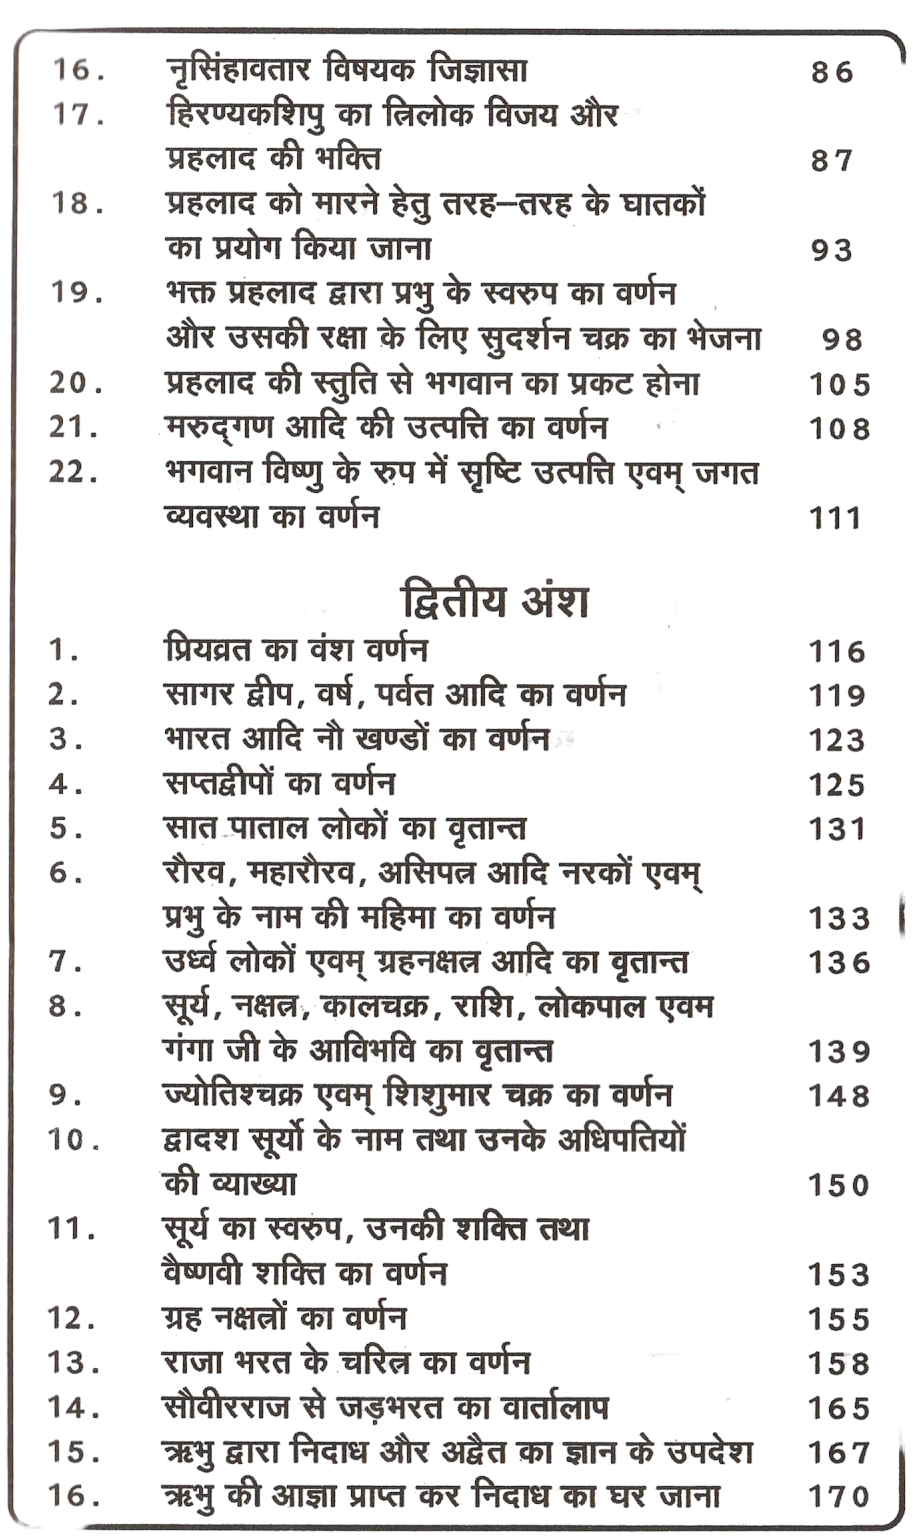 16. नृसिंहावतार विषयक जिज्ञासा 86
17. हिरण्यकशिपु का त्रिलोक विजय और
प्रहलाद की भक्ति 87
18. प्रहलाद को मारने हेतु तरह–तरह के घातकों
का प्रयोग किया जाना 93
19. भक्त प्रहलाद द्वारा प्रभु के स्वरुप का वर्णन
और उसकी रक्षा के लिए सुदर्शन चक्र का भेजना 98
20. प्रहलाद की स्तुति से भगवान का प्रकट होना 105
21. मरुद्‌गण आदि की उत्पत्ति का वर्णन 108
22. भगवान विष्णु के रुप में सृष्टि उत्पत्ति एवम् जगत
व्यवस्था का वर्णन 111
द्वितीय अंश
1. प्रियव्रत का वंश वर्णन 116
2. सागर द्वीप, वर्ष, पर्वत आदि का वर्णन 119
3. भारत आदि नौ खण्डों का वर्णन 123
4. सप्तद्वीपों का वर्णन 125
5. सात पाताल लोकों का वृतान्त 131
6. रौरव, महारौरव, असिपत्र आदि नरकों एवम्
प्रभु के नाम की महिमा का वर्णन 133
7. उर्ध्व लोकों एवम् ग्रहनक्षत्र आदि का वृतान्त 136
8. सूर्य, नक्षत्र, कालचक्र, राशि, लोकपाल एवम
गंगा जी के आविभवि का वृतान्त 139
9. ज्योतिश्चक्र एवम् शिशुमार चक्र का वर्णन 148
10. द्वादश सूर्यो के नाम तथा उनके अधिपतियों
की व्याख्या 150
11. सूर्य का स्वरुप, उनकी शक्ति तथा
वैष्णवी शक्ति का वर्णन 153
12. ग्रह नक्षत्रों का वर्णन 155
13. राजा भरत के चरित्र का वर्णन 158
14. सौवीरराज से जड़भरत का वार्तालाप 165
15. ऋभु द्वारा निदाध और अद्वैत का ज्ञान के उपदेश 167
16. ऋभु की आज्ञा प्राप्त कर निदाध का घर जाना 170